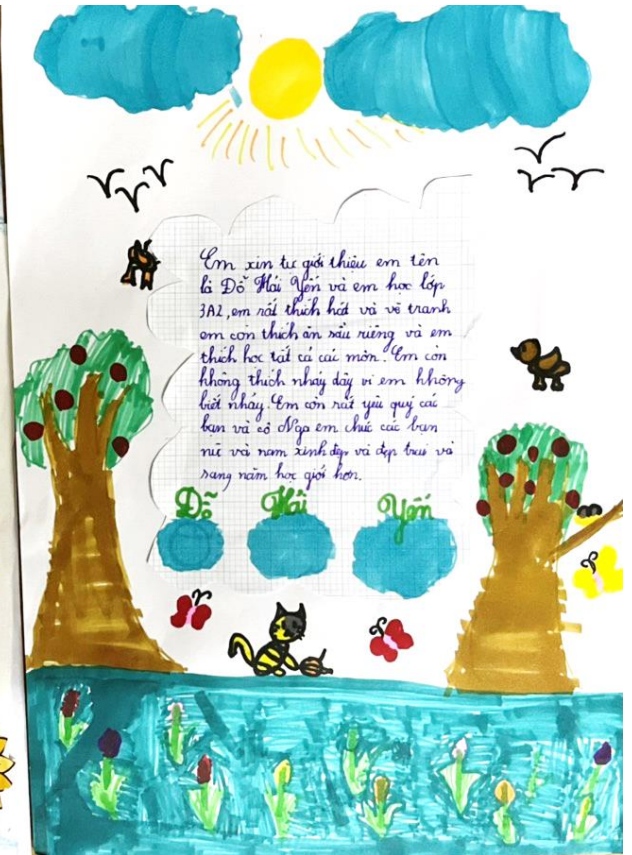 Em xin tự giới thiệu em tên
là Đỗ Hải Yến và em học lớp
3A2, em rất thích hát và vẽ tranh
em còn thích ăn sầu riêng và em
thích học tất cả các môn. Em còn
không thích nhảy dây vì em không
biết nhảy. Em còn rất yêu quý các
bạn và cô Nga em chúc các bạn
nữ và nam xinh đẹp và đẹp trai và
sang năm học giỏi hơn.
Đỗ Hải Yến